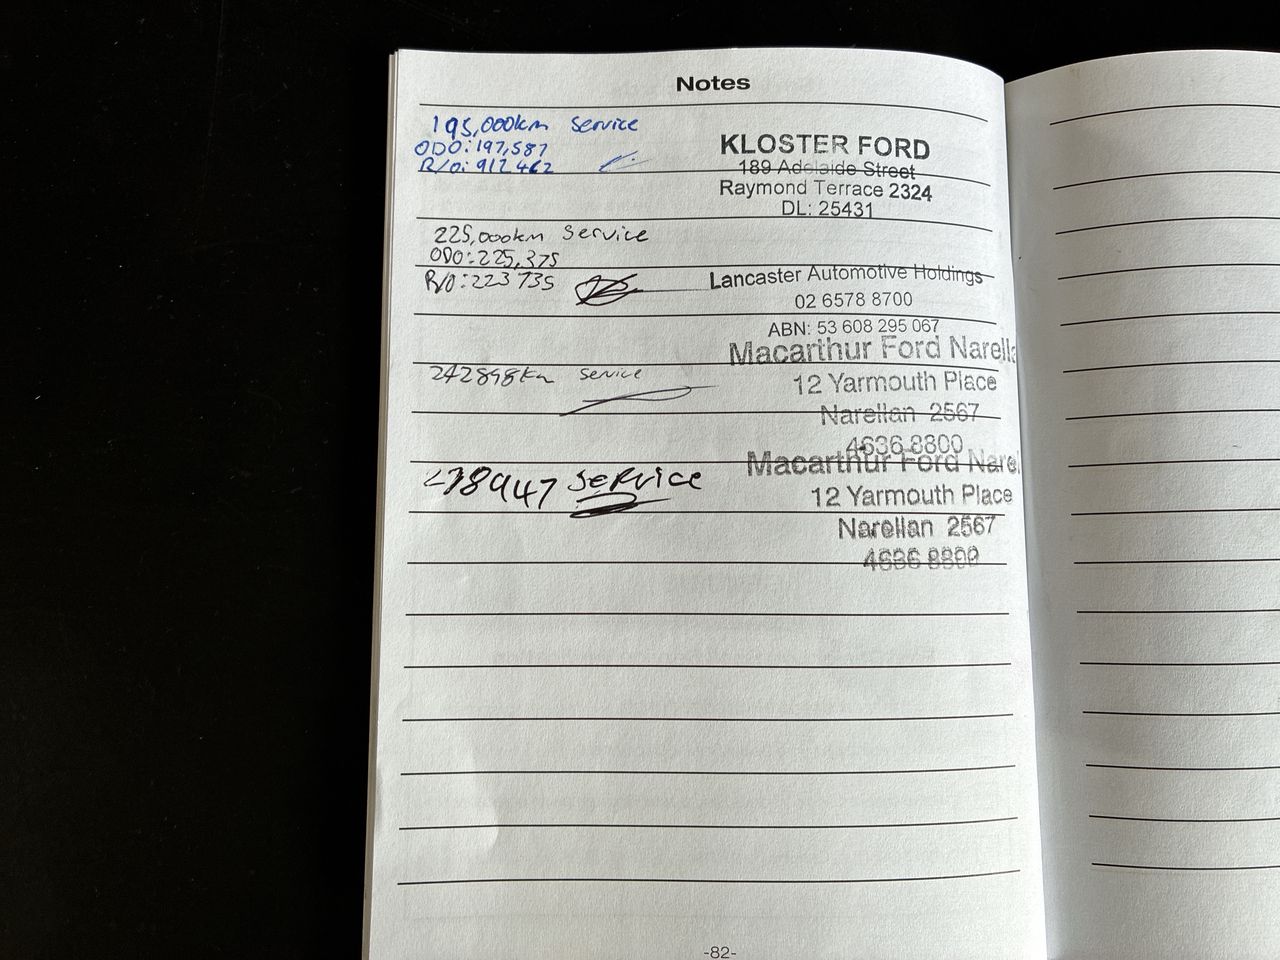 Notes
195,000km Service
ODO: 197,587
R/O: 912462
KLOSTER FORD
189 Adelaide Street
Raymond Terrace 2324
DL: 25431
225,000km Service
ODO: 225,375
R/O: 223735
Lancaster Automotive Holdings
02 6578 8700
ABN: 53 608 295 067
242898km Service
Macarthur Ford Narella
12 Yarmouth Place
Narellan 2567
4636 8800
SERVICE
Macarthur Ford Narel
12 Yarmouth Place
Narellan 2567
4636 8800
-82-